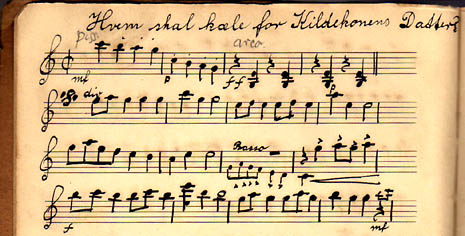 Hvem skal kæle for Kildekonens Datter?
pizz arco
mf p ff
div
Basso
f mf